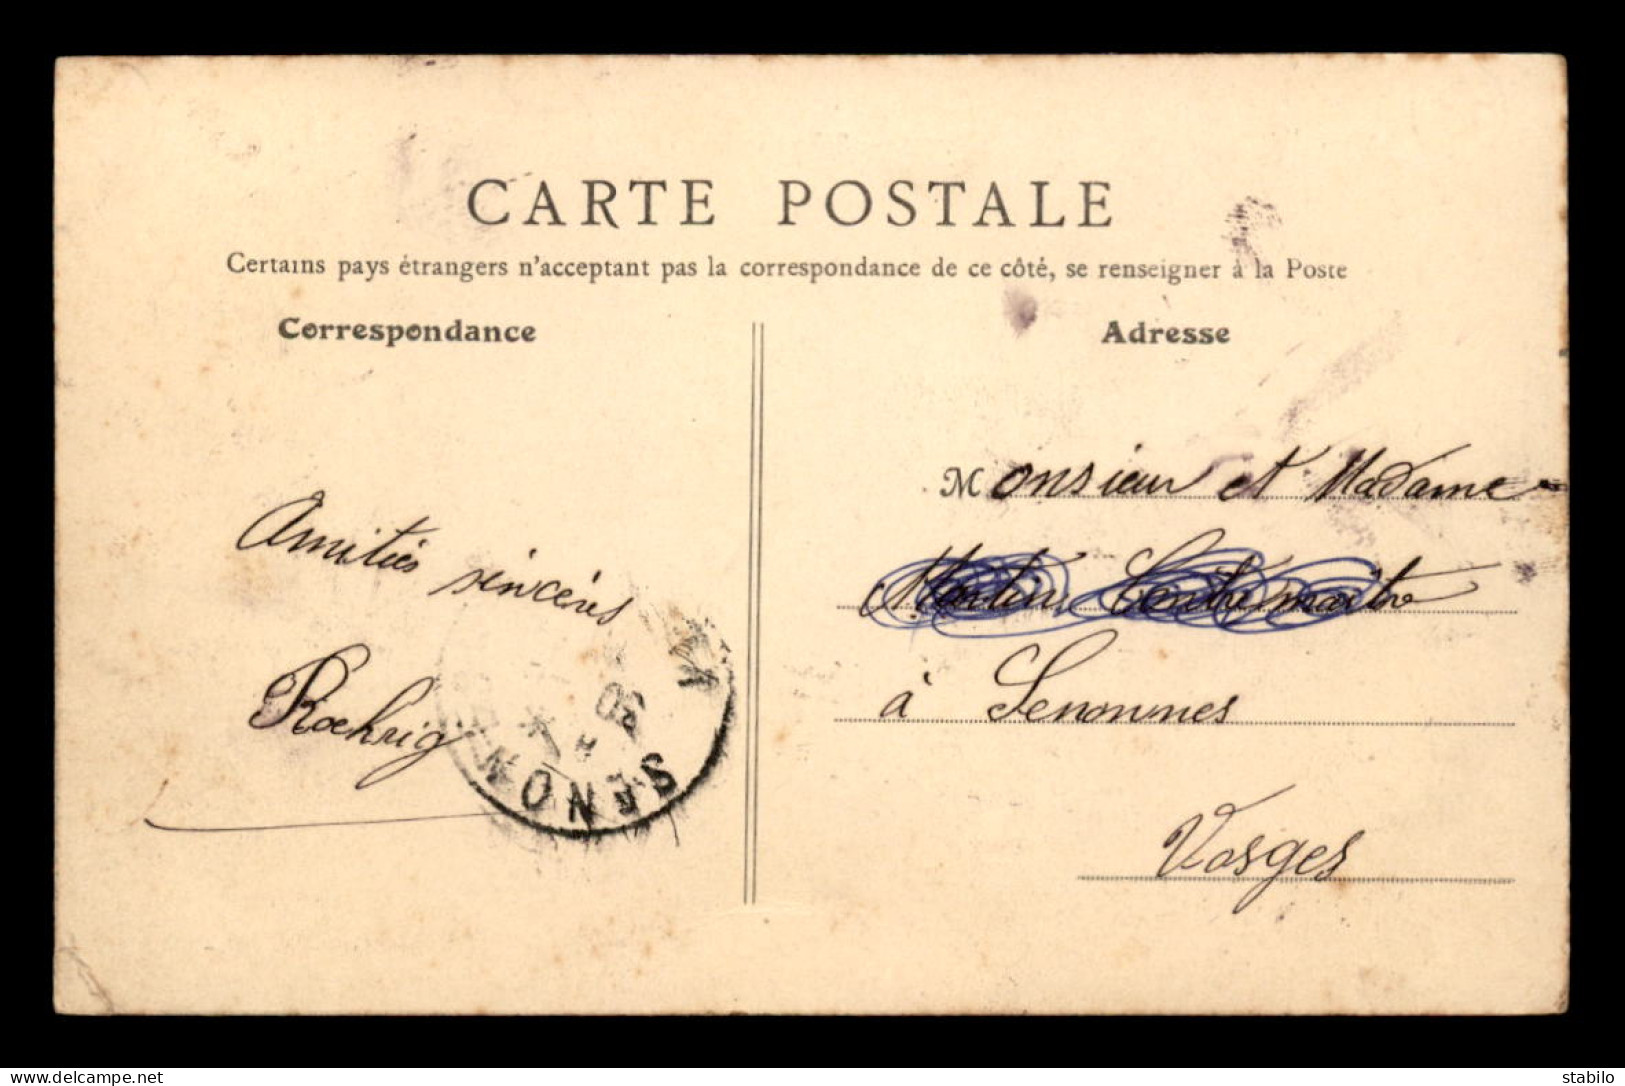 CARTE POSTALE
Certains pays étrangers n'acceptant pas la correspondance de ce côté, se renseigner à la Poste
Correspondance
Adresse
Amitiés sincères
Roehrig
SENON
Monsieur et Madame
Martin Contremaître
à Senonnes
Vosges
www.delcampe.net
stabilo